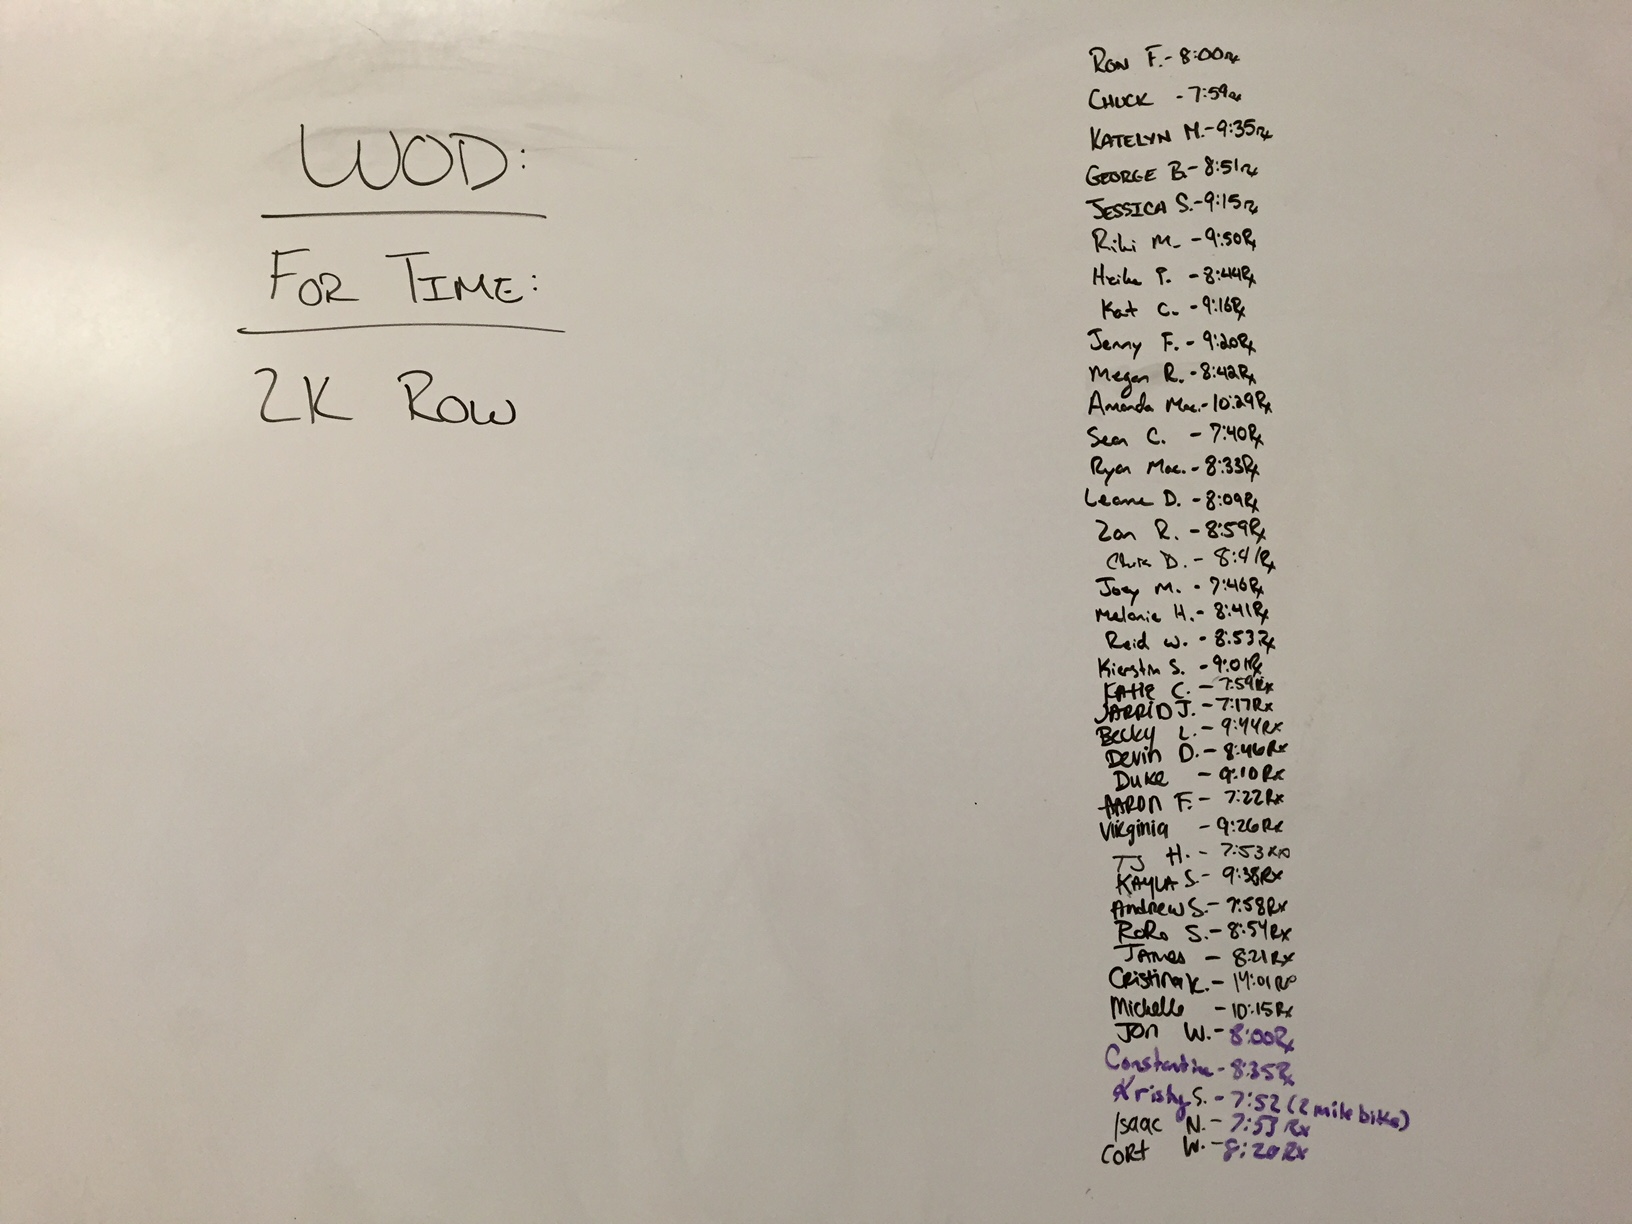 WOD:
FOR TIME:
2K ROW
RON F. - 8:00 Rx
CHUCK - 7:59 Rx
KATELYN M. - 9:35 Rx
GEORGE B. - 8:51 Rx
JESSICA S. - 9:15 Rx
Riki M. - 9:50 Rx
Heike P. - 8:44 Rx
Kat C. - 9:16 Rx
Jenny F. - 9:20 Rx
Megan R. - 8:42 Rx
Amanda Mac. - 10:29 Rx
Sean C. - 7:40 Rx
Ryan Mac. - 8:33 Rx
Leanne D. - 8:09 Rx
Zan R. - 8:59 Rx
Chris D. - 8:41 Rx
Joey M. - 7:46 Rx
Melanie H. - 8:41 Rx
Reid W. - 8:53 Rx
Kierstin S. - 9:01 Rx
KATIE C. - 7:59 Rx
JARRID J. - 7:17 Rx
Becky L. - 9:44 Rx
Devin D. - 8:46 Rx
Duke - 9:10 Rx
AARON F. - 7:22 Rx
Virginia - 9:26 Rx
TJ H. - 7:53
KAYLA S. - 9:38 Rx
Andrew S. - 7:58 Rx
RoRo S. - 8:54 Rx
JAMES - 8:21 Rx
Cristina K. - 14:01
Michelle - 10:15 Rx
JON W. - 8:00 Rx
Constantine - 8:35 Rx
Kristy S. - 7:52 (2 mile bike)
Isaac N. - 7:53 Rx
CORT W. - 8:20 Rx